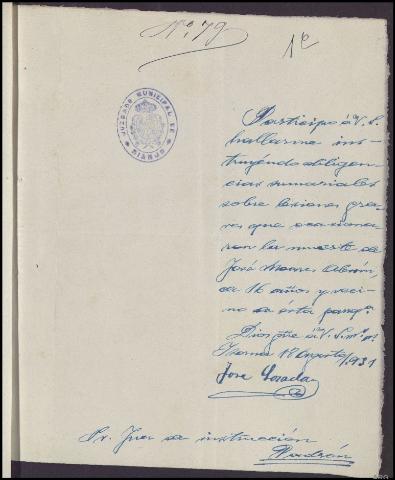 Nº 79
1º
JUZGADO MUNICIPAL DE
Participo á V. S.
hallarme ins-
truyendo diligen-
cias sumariales
sobre lesiones gra-
ves que ocasiona-
ron la muerte de
José
de 16 años y veci-
no de esta parrqª.
Dios gue á V. S. m. a.
18 Agosto 1931
José Losada
Sr. Juez de instrucción
Padrón